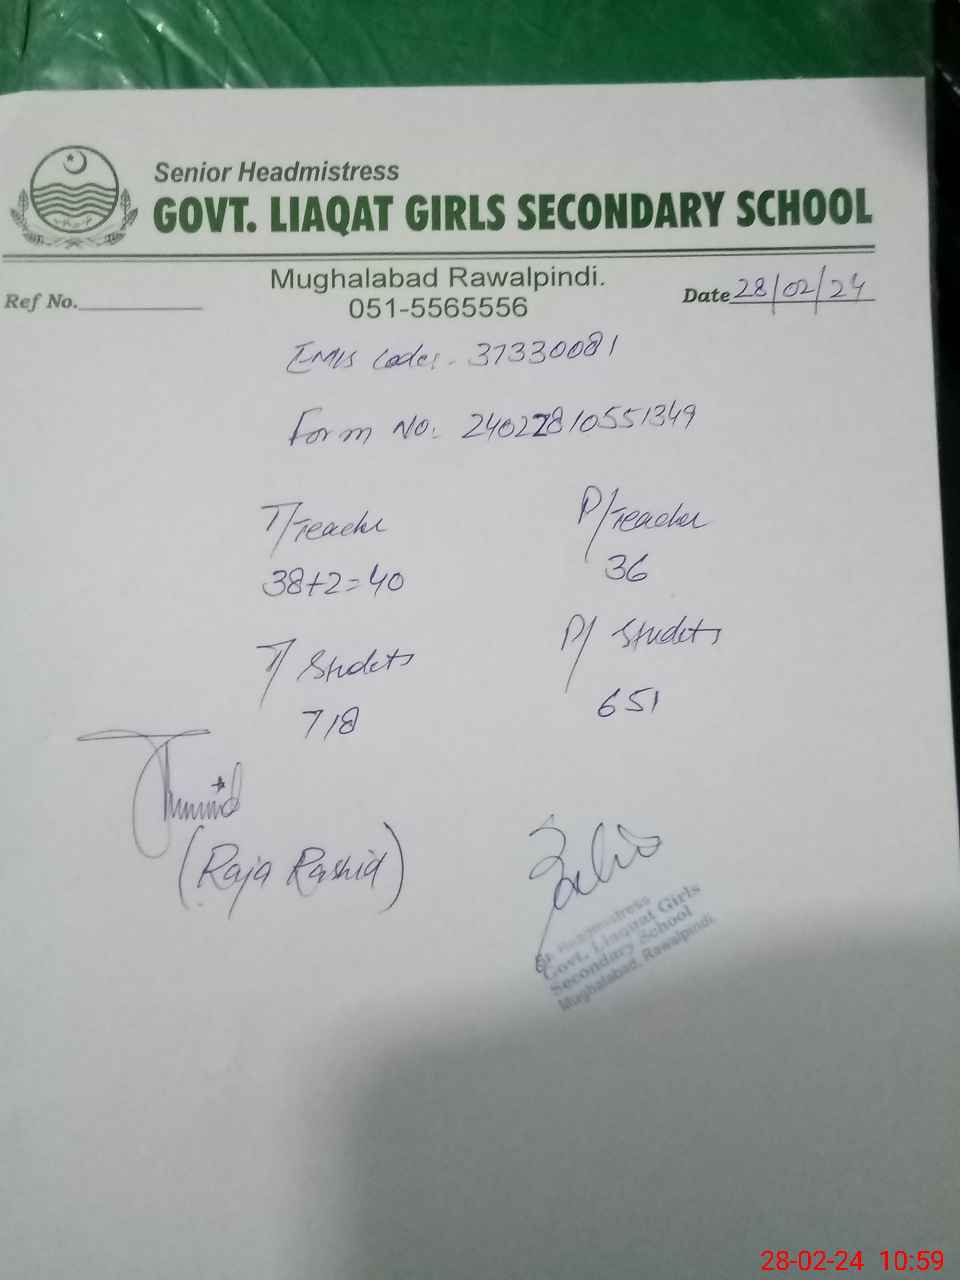 Senior Headmistress
GOVT. LIAQAT GIRLS SECONDARY SCHOOL
Mughalabad Rawalpindi.
051-5565556
Ref No.
Date 28/02/24
EMIS Code: 37330081
Form No: 24022810551349
T/Teacher P/Teacher
38+2=40 36
T/ Students P/ Students
718 651
(Raja Rashid)
Sr. Headmistress
Govt. Liaquat Girls
Secondary School
Mughalabad, Rawalpindi.
28-02-24 10:59